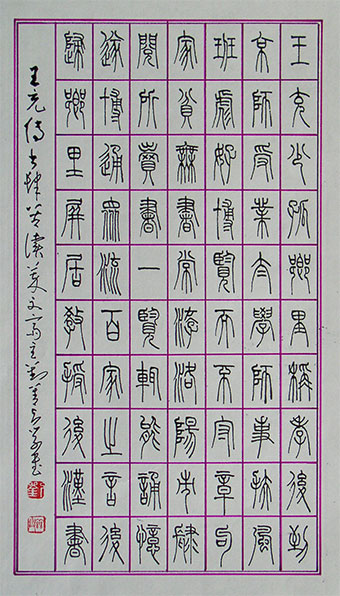 王充少孤鄉里稱孝後到
京師受業太學師事扶風
班彪好博覽而不守章句
家貧無書常游洛陽市肆
閱所賣書一覽輒能誦憶
遂博通眾流百家之言後
歸鄉里屏居教授後漢書
王充傳書肆苦讀美文齋主劉